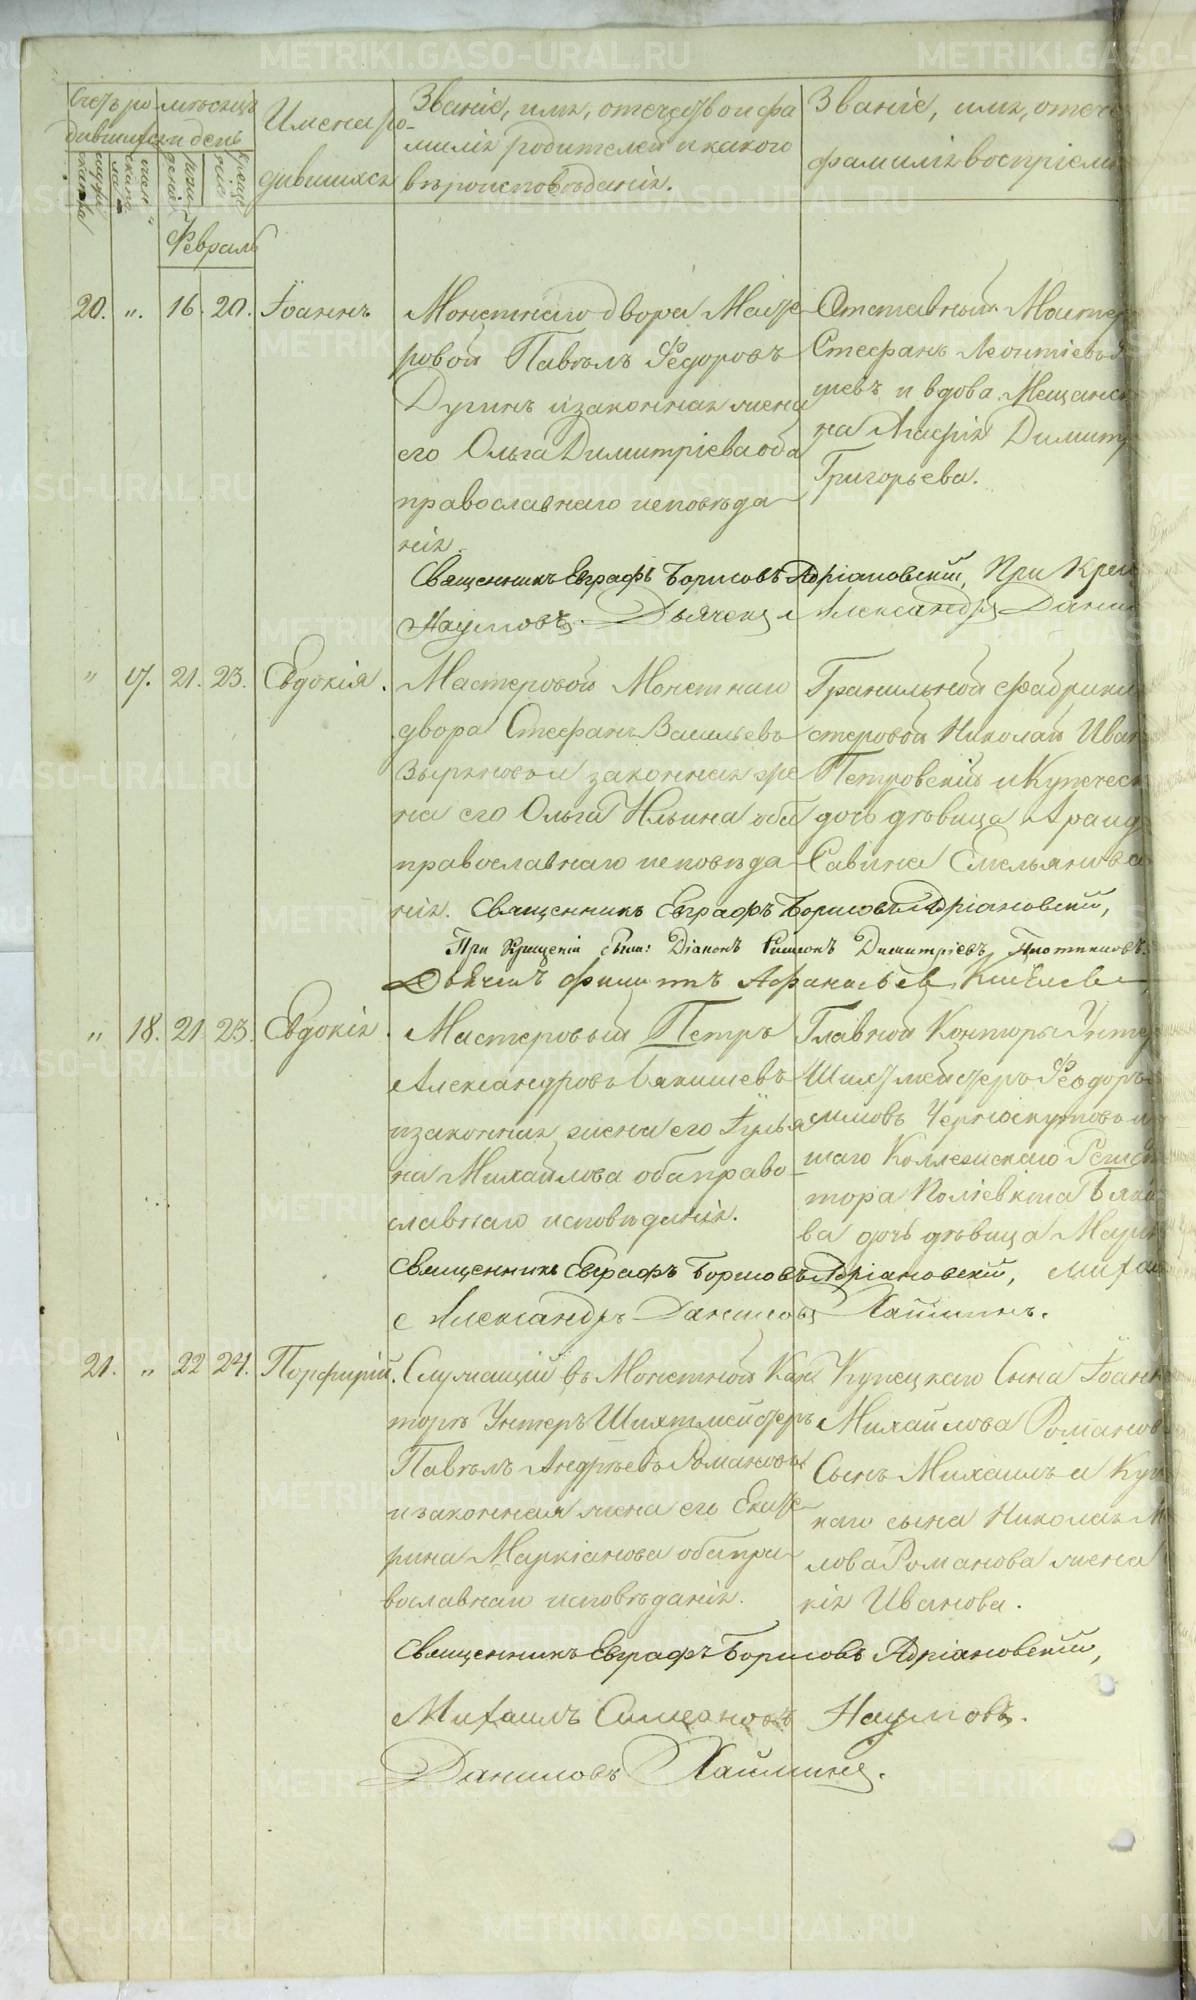 Счетъ ро
дившихся
мѣсяцъ
и день
Имена ро-
дившихся
Званіе, имя, отечество и фа
милія родителей и какого
вѣроисповѣданія.
Званіе, имя, отече
фамилія воспріем
Февраль
20. „ 16. 20. Іоаннъ
Монетнаго двора Масте-
ровой Павелъ Ѳедоровъ
Дугинъ и законная жена
его Ольга Димитріева оба
православнаго исповѣда-
нія.
Отставный Мастер
Стефанъ Леонтіевъ
шевъ и вдова Мещанск
на Агафія Димитр
Григорьева.
Священникъ Евграфъ Борисовъ Адріановскій, При Крещ
Наумовъ. Дьячекъ Александръ Дани
„ 17. 21. 23. Евдокія.
Мастеровой Монетнаго
двора Стефанъ Васильевъ
законная же
на его Ольга Ильина оба
православнаго исповѣда-
нія.
Гранильной фабрики
стеровой Николай Иван
Петровскій и Купеческ
дочь дѣвица
Савина Емельянова
Священникъ Евграфъ Борисовъ Адріановскій,
При Крещеніи были: Діаконъ Димитріевъ Плотниковъ.
Дьячекъ Филиппъ Афанасьев Киселев
„ 18. 21. 23. Евдокія.
Мастеровый Петръ
Александровъ Бякишевъ
и законная жена его Іулья
на Михайлова оба право-
славнаго исповѣданія.
Главной Конторы Унтер
Шихтмейстеръ Ѳеодоръ
симовъ Черноскутовъ и
шаго Коллежскаго Регист
тора
ва дочь дѣвица Марі
Священникъ Евграфъ Борисовъ Адріановскій, Михаи
Александръ Даниловъ Хаймин.
21. „ 22 24. Порфирій.
Служащій въ Монетной Кон
торѣ Унтеръ Шихтмейстеръ
Павелъ Андреевъ Романовъ
и законная жена его Екате-
рина Маркіанова оба пра-
вославнаго исповѣданія.
Купецкаго Сына Іоанн
Михайлова Романов
Сынъ Михаилъ и Куп
каго сына Николая М
лова Романова жена
кія Иванова.
Священникъ Евграфъ Борисовъ Адріановскій,
Михаилъ Симеоновъ Наумовъ.
Даниловъ Хаймин.
METRIKI.GASO-URAL.RU